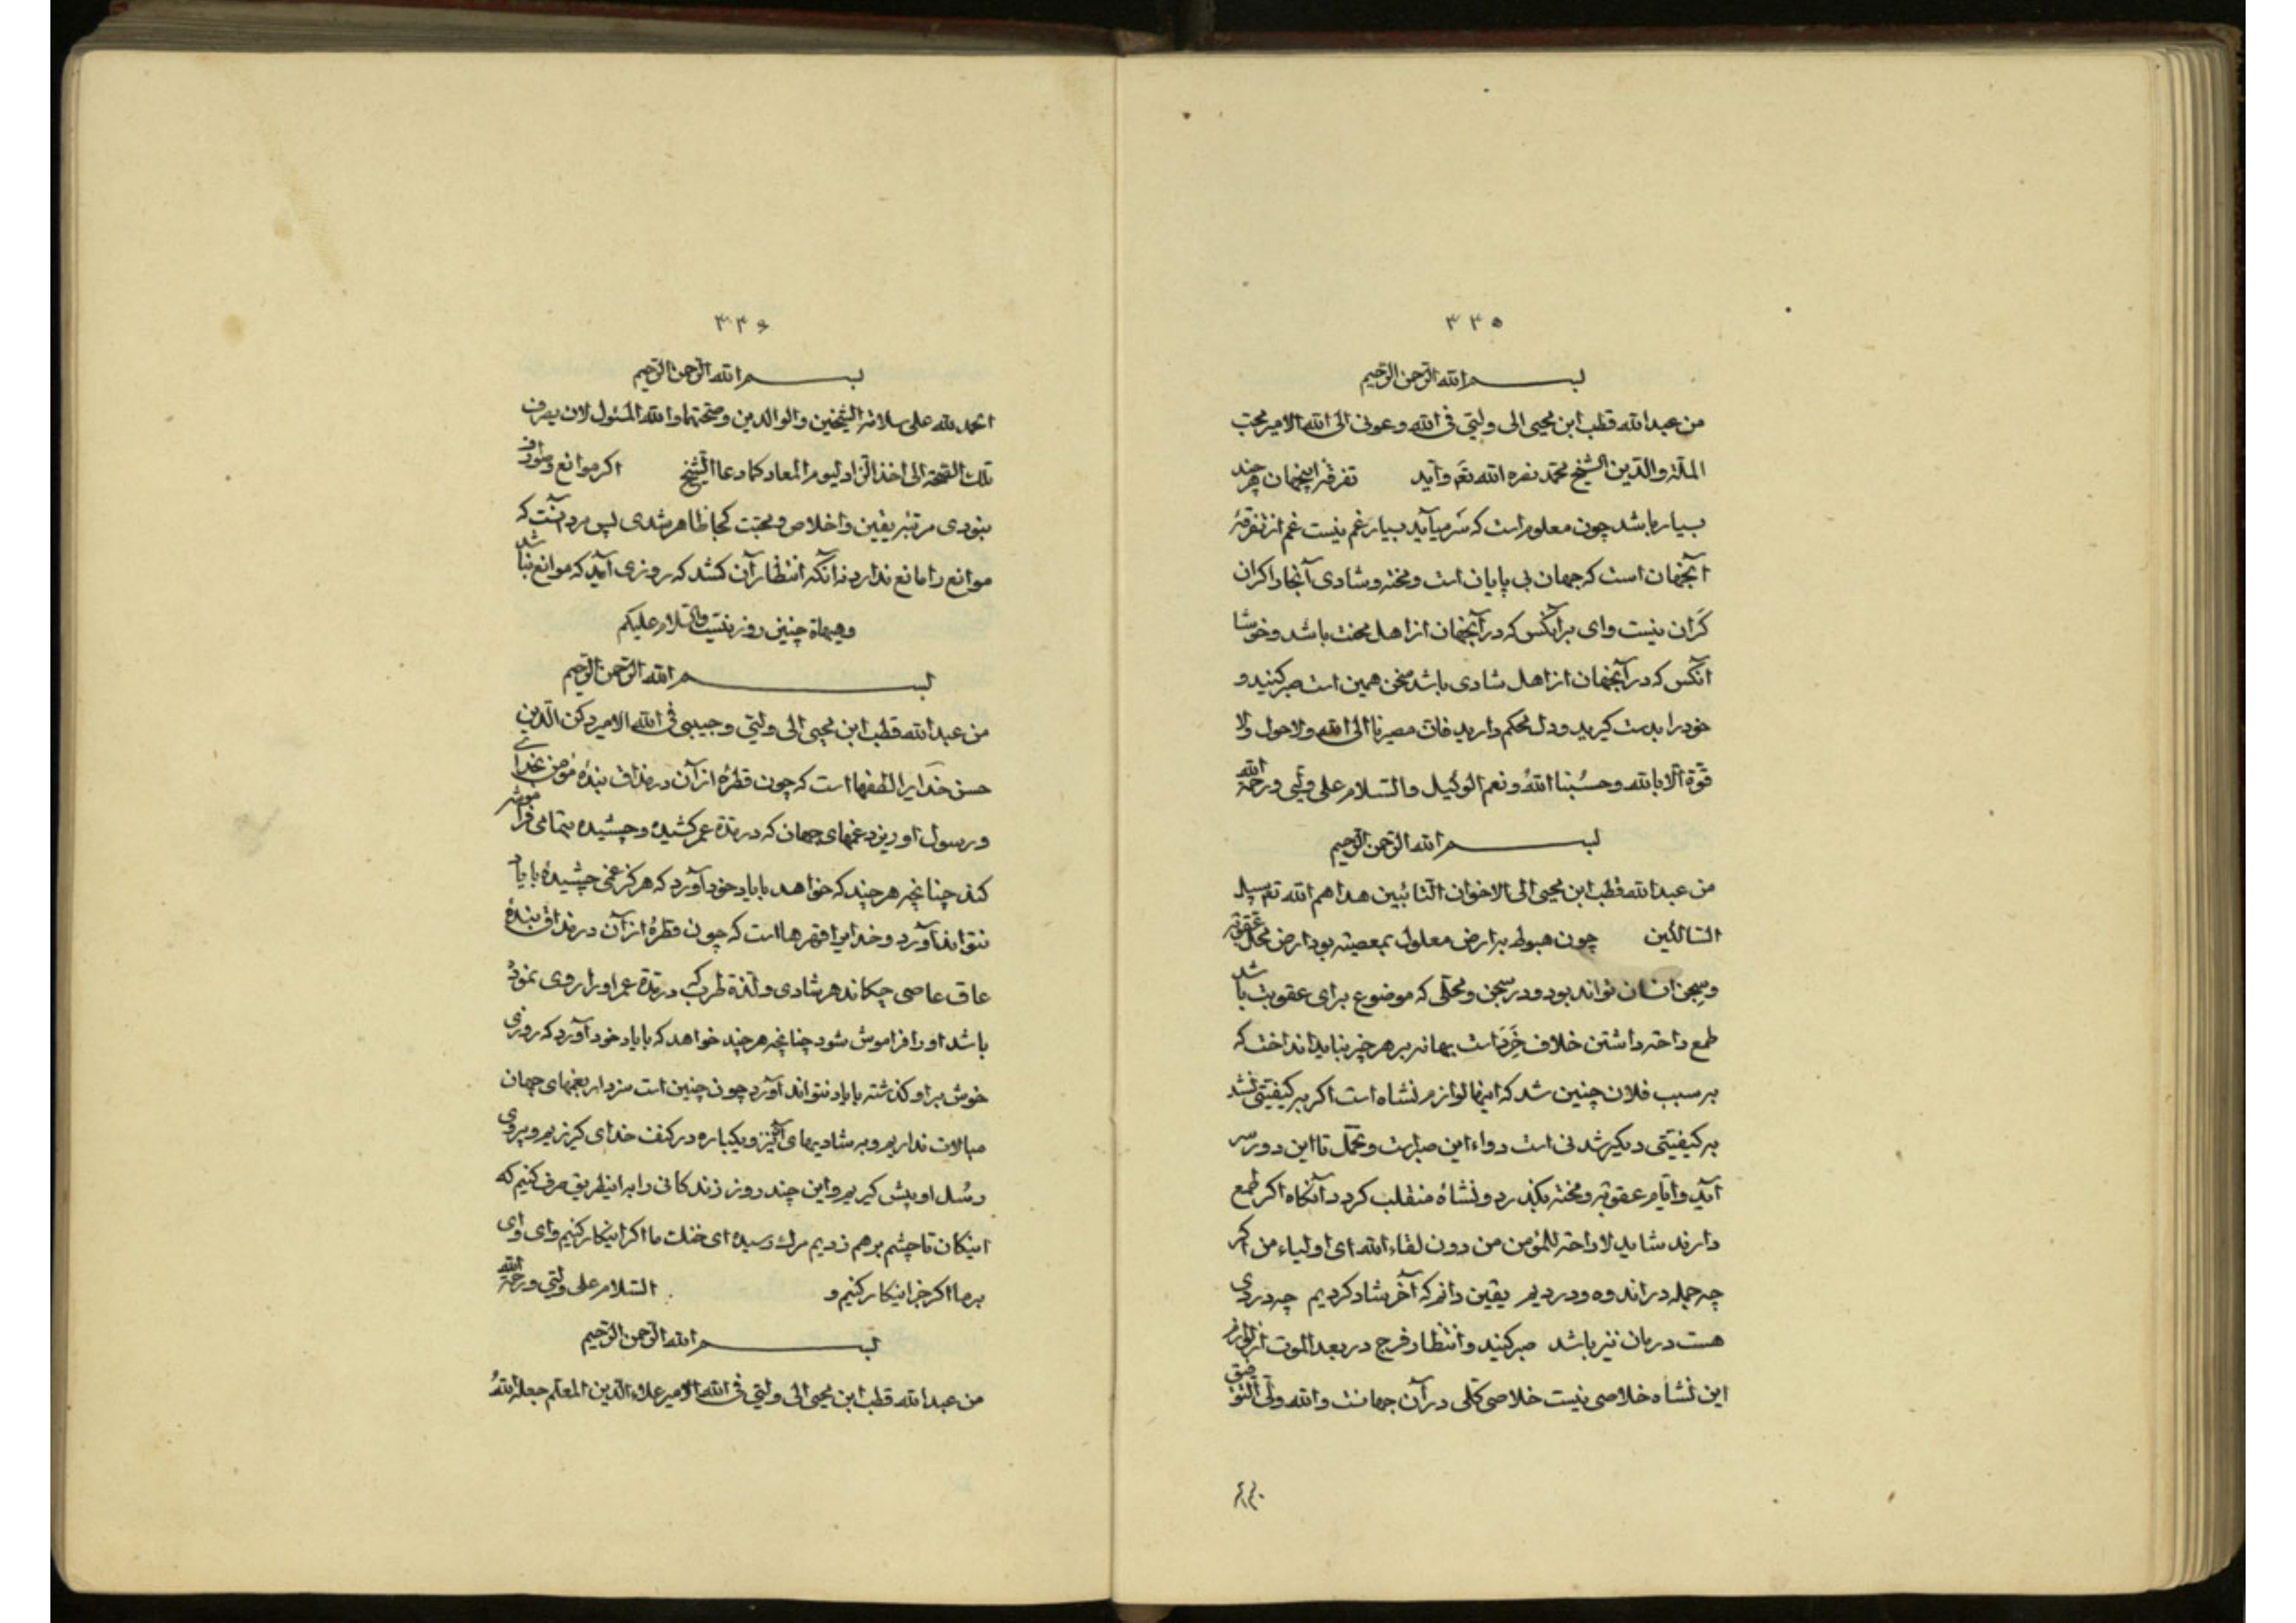 ۳۳۵
بسم الله الرحمن الرحیم
من عبدالله قطب ابن محیی الی ولیّی فی الله وعونی الی الله الامیر محب
الملّة والدّین الشیخ محمد نصره الله تعٰ وایّد تفرقهٔ اینجهان هرچند
بسیار باشد چون معلوم است که سَر میآید بسیار غم نیست غم از تفرقهٔ
آنجهان است که جهان بی پایان است ومحنة وشادی آنجا را کران
کَران نیست وای برآنکس که در آنجهان از اهل محنت باشد وخوشا
آنکس که در آنجهان از اهل شادی باشد سخن همین است صبر کنید و
خود را بدست گیرید و دل محکم دارید فان مصیرنا الی الله ولاحول ولا
قوّة الّا بالله وحسُبنا اللهُ ونعم الوکیل والسّلام علی ولیّی ورحمة الله
بسم الله الرحمن الرحیم
من عبدالله قطب ابن محیی الی الاخوان التّائبین هداهم الله تعٰ سبیل
السّالکین چون هبوط بر ارض معلول بمعصیة بود ارض محل عقوبة
وسجن انسان تواند بود ودر سجن ومحلّی که موضوع برای عقوبت باشد
طمع راحة داشتن خلاف خِرَد است بهانه بر هر چیز نباید انداخت که
بر سبب فلان چنین شد که اینها لوازم نشاه است اگر بر کیفیّتی نشد
بر کیفیّتی دیگر شدنی است دواء این صبر است وتحمّل تا این دور بسر
آید وایّام عقوبة ومحنة بگذرد ونشاهٔ منقلب گردد آنگاه اگر طمع
دارند شاید لا راحة للمؤمن من دون لقاء الله ای اولیاء من اگر
چه جمله در اندوه ودردیم یقین دانم که آخر شاد گردیم چه دردی
هست درمان نیز باشد صبر کنید وانتظار فرج در بعد الموت از لوازم
این نشاه خلاصی نیست خلاصی کلّی در آن جهانست والله ولیّ التوفیق
۳۳۶
بسم الله الرحمن الرحیم
الحمد لله علی سلامة الشیخین والوالدین وصحّتهما والله المسئول لان یصرف
تلک الصّحة الی اخذ الزّاد لیوم المعاد کما دعا الشّیخ اگر موانع وصوارف
نبودی مرتبهٔ یقین واخلاص ومحبّت کجا ظاهر شدی پس مرد آنست که
موانع را مانع ندارد نه آنکه انتظار آن کشد که روزی آید که موانع نباشد
وهیهاة چنین روز نیست والسّلام علیکم
بسم الله الرحمن الرحیم
من عبدالله قطب ابن محیی الی ولیّی وحبیبی فی الله الامیر رکن الدّین
حسن خدایرا لطفها است که چون قطرهٔ از آن در مذاق بندهٔ مؤمن بخدای
ورسول او ریزد غمهای جهان که در مدّة عمر کشیده وچشیده بتمامی فراموش
کند چنانچه هرچند که خواهد با یاد خود آورد که هرگز غمی چشیدهٔ با یاد
نتواند آورد وخدایرا قهرها است که چون قطرهٔ از آن در مذاق بندهٔ
عاق عاصی چکاند هر شادی ولذّة طرب که در مدّة عمر او را روی نمودهٔ
باشد او را فراموش شود چنانچه هرچند خواهد که با یاد خود آورد که روزی
خوش بر او گذشته با یاد نتواند آورد چون چنین است سزد ار بغمهای جهان
مبالات نداریم وبر شادیهای آن نیز ویکباره در کنف خدای گریزیم وپیروی
رسُل او پیش گیریم واین چند روز زندگانی را بر اینطریق صرف کنیم که
اینکان تا چشم بر هم زدیم مرگ رسیده ای خنک ما اگر اینکار کنیم وای وای
بر ما اگر جز اینکار کنیم و السّلام علی ولیّی ورحمة الله
بسم الله الرحمن الرحیم
من عبدالله قطب ابن محیی الی ولیّی فی الله الامیر علاء الدّین المعلّم جعله اللهُ